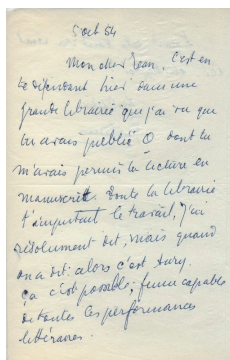 5 oct 54
Mon cher Jean. C'est en
te défendant hier dans une
grande librairie que j'ai vu que
tu avais publié O dont tu
m'avais permis la lecture en
manuscrit. Toute la librairie
t'imputant le travail, j'ai
résolument dit, mais quand
on a dit: alors c'est Aury.
ça c'est possible, femme capable
de toutes les performances
littéraires.